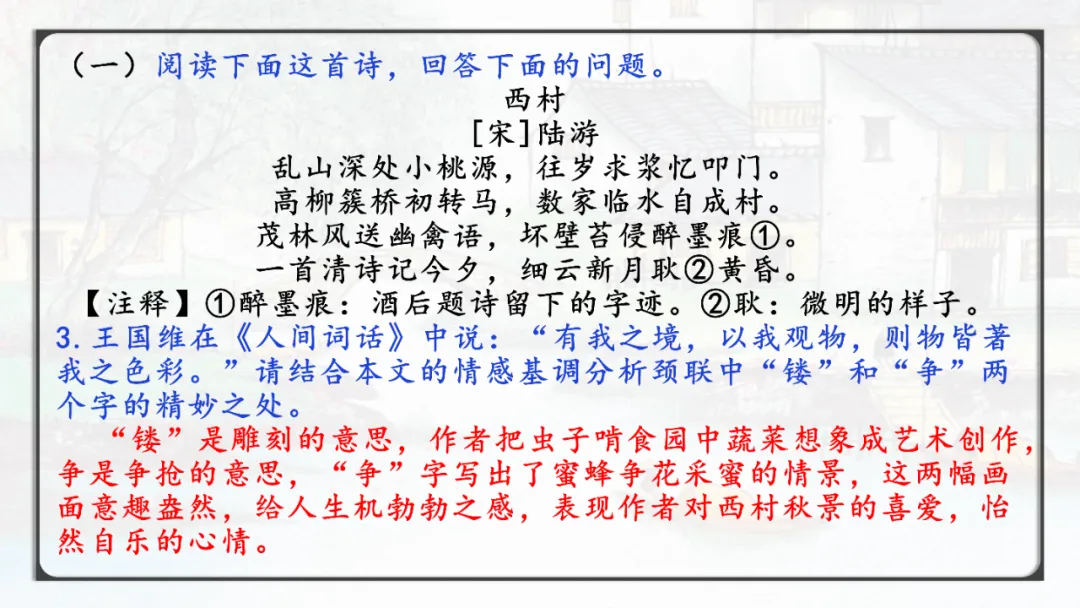 （一）阅读下面这首诗，回答下面的问题。
西村
[宋]陆游
乱山深处小桃源，往岁求浆忆叩门。
高柳簇桥初转马，数家临水自成村。
茂林风送幽禽语，坏壁苔侵醉墨痕①。
一首清诗记今夕，细云新月耿②黄昏。
【注释】①醉墨痕：酒后题诗留下的字迹。②耿：微明的样子。
3.王国维在《人间词话》中说：“有我之境，以我观物，则物皆著
我之色彩。”请结合本文的情感基调分析颈联中“镂”和“争”两
个字的精妙之处。
“镂”是雕刻的意思，作者把虫子啃食园中蔬菜想象成艺术创作，
争是争抢的意思，“争”字写出了蜜蜂争花采蜜的情景，这两幅画
面意趣盎然，给人生机勃勃之感，表现作者对西村秋景的喜爱，怡
然自乐的心情。